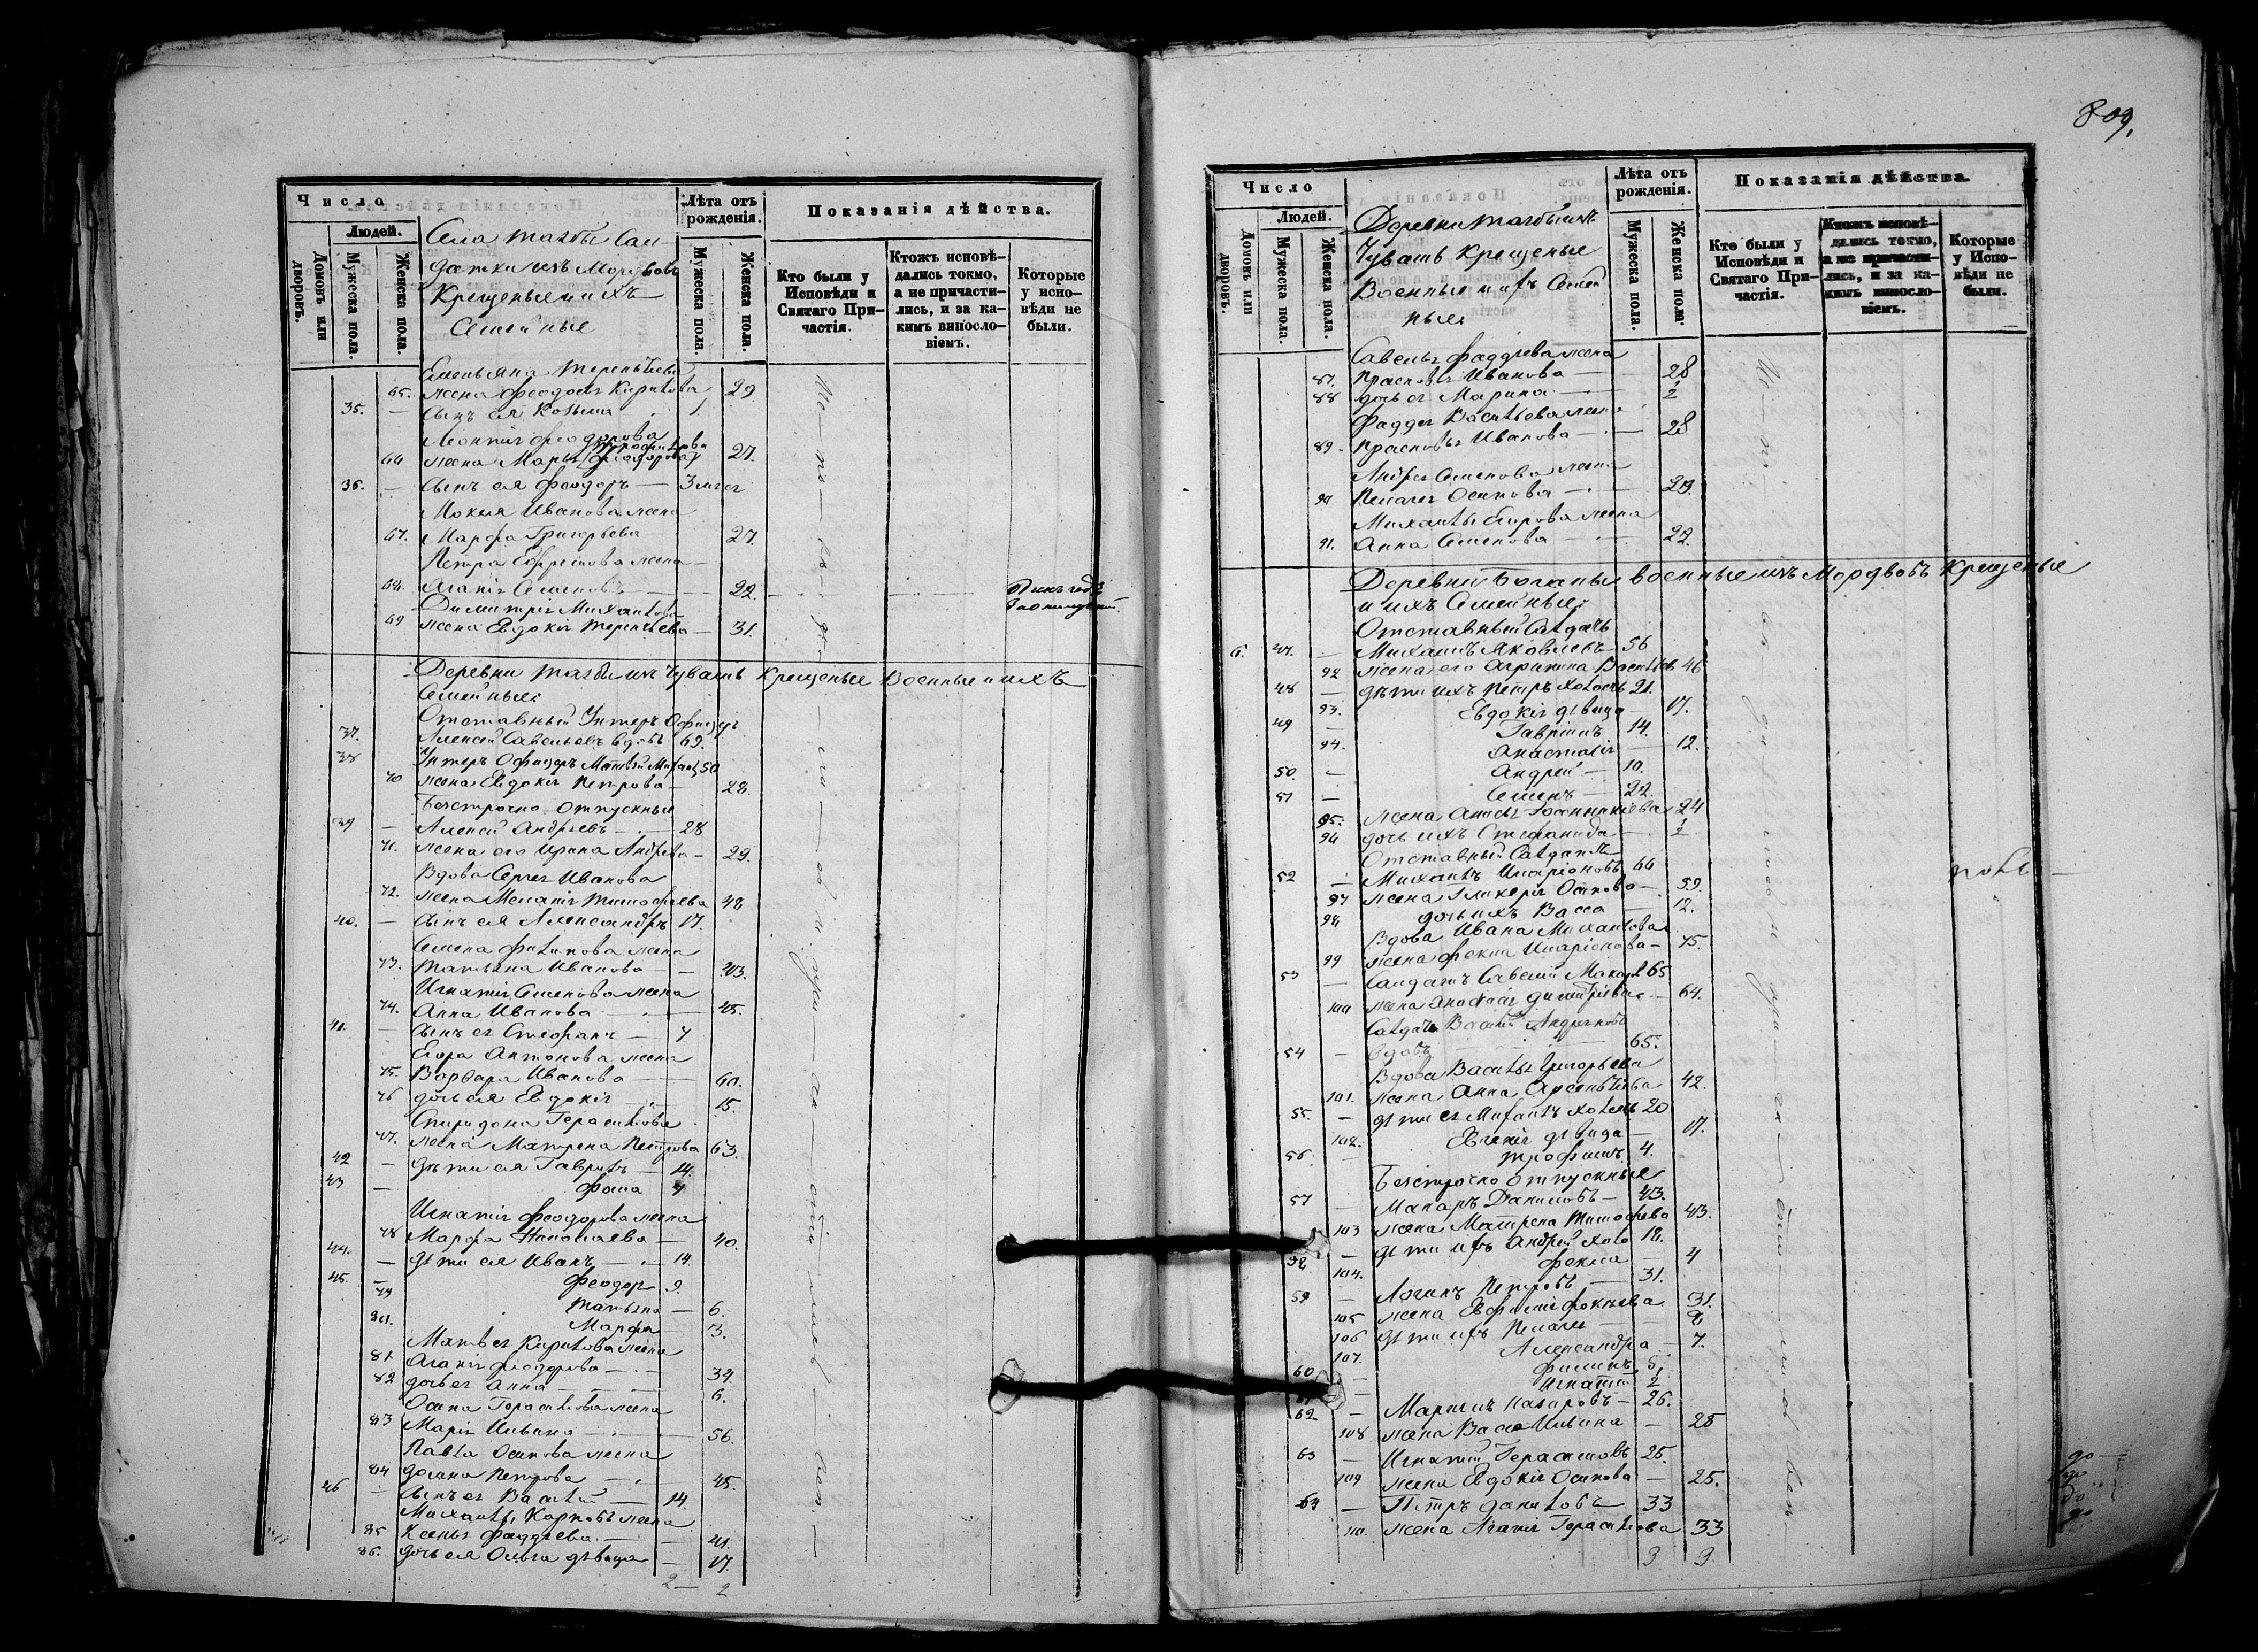 Число
Людей.
Домовъ или дворовъ.
Мужеска пола.
Женска пола.
Села Тагаы Сол-
датки изъ Мордвовъ
Крещеныя и ихъ
Семейные
Лѣта отъ рожденія.
Мужеска пола.
Женска пола.
Показанія дѣйства.
Кто были у Исповѣди и Святаго Причастія.
Ктожъ исповѣдались токмо, а не причастились, и за какимъ винословіемъ.
Которые у исповѣди не были.
Емельяна Терентьева
65. жена Феодосья Кирилова 29
35. — сынъ ея Козьма 1.
Леонтія Феодорова
66 жена Марья 27.
36. — сынъ ея Феодоръ — 3
Мокея Иванова жена
67. Марфа Григорьева 27.
Петра Ефремова жена
68. Агапія Семенова 22.
Димитрія Михайлова
69 жена Евдокія Терентьева — 31.
Деревни изъ Чувашъ Крещеные Военные и ихъ
Семейные:
Отставный Унтеръ Офицеръ
37. Алексей Савельевъ вдовъ 69.
38 Унтеръ Офицеръ Матвей 50
70 жена Евдокія Петрова — 28.
Безсрочно-отпускные
39 — Алексей Андреевъ — 28
71. жена его Ирина Андреева — 29.
Вдова Сергея Иванова
72. жена Меланія Тимофеева 48
40. — сынъ ея Александръ 17.
Семена Филипова жена
73. Татьяна Иванова — 43.
Игнатія Семенова жена
74. Анна Иванова — 45.
41. — сынъ ея Стефанъ — 7
Егора Антонова жена
75. Варвара Иванова — 60.
76 дочь ея Евдокія 15.
Спиридона Герасимова
77. жена Матрена Петрова 63.
42 — дѣти ея Гаврилъ — 14.
43 — Фома 7
Игнатія Феодорова жена
78 Марфа Николаева — 40.
44. — дѣти ея Иванъ — 14.
45. — Феодоръ 9.
79 Татьяна — 6.
80. Марфа 3.
Матвея Кирилова жена
81 Агапія Феодорова — 34.
82 дочь ея Анна 6.
Осипа Герасимова жена
83 Марія Ильина — 56.
Павла Осипова жена
84 Петрова — 45.
46 — сынъ ея Василій — 14.
Михаилы Карповъ жена
85 Ксенья Фаддеева — 41.
86. дочь ея Ольга дѣвица — 17.
2 — 2
809.
Число
Людей.
Домовъ или дворовъ.
Мужеска пола.
Женска пола.
Деревни изъ
Чувашъ Крещеные
Военные и ихъ Семей
ные:
Лѣта отъ рожденія.
Мужеска пола.
Женска пола.
Показанія дѣйства.
Кто были у Исповѣди и Святаго Причастія.
Ктожъ исповѣдались токмо, а не причастились, и за какимъ винословіемъ.
Которые у Исповѣди не были.
Савелья Фаддеева жена
87. Прасковья Иванова — 28
88 дочь ея Марина 1/2
Фаддея Васильева жена
89 Прасковья Иванова — 28
Андрея Семенова жена
90 Пелагея Осипова — 29.
Михаилы Егорова жена
91. Анна Семенова — 22.
Деревни военные изъ Мордвовъ Крещеные
и ихъ Семейные:
Отставный Солдатъ
6. 47. — Михаилъ Яковлевъ — 56
92 жена его Агрипина 46
48 — дѣти ихъ Петръ холостъ 21.
93. Евдокія дѣвица 17.
49 — Гаврилъ 14.
94. Анастасія 12.
50. — Андрей — 10.
51 — Семенъ — 22.
95. жена Анисья 24
96 дочь ихъ Степанида 1/2
Отставный Солдатъ
52 — Михаилъ Иларіоновъ 60
97 жена Гликерія Осипова — 59.
98 дочь ихъ Васса 12.
Вдова Ивана Михайлова
99 жена Фекла Иларіонова — 75.
53 — Солдатъ Савелій 65
100 жена Анастасія Димитріева — 64.
Солдатъ Василій
54 — вдовъ 65.
Вдова Василья Григорьева
101. жена Анна Арсентьева 42.
55. — дѣти ея Михаилъ холостъ 20
102. Евгенія дѣвица 17.
56. — Трофимъ 4.
Безсрочно отпускные
57 — Макаръ Даниловъ — 43.
103 жена Матрена Тимофеева 43.
58. — дѣти ихъ Андрей 18.
104. Фекла 7
59 — Логинъ Петровъ — 31.
105 жена Ефимія 31.
106 дѣти ихъ Пелагея 9
107. Александра — 7.
60 — Филипъ 5,
61 — Игнатій 2
62 — Мартинъ Назаровъ — 26.
108 жена Васса Ильина — 25
63 — Игнатій Герасимовъ 25.
109 жена Евдокія Осипова — 25.
64 — Петръ Даниловъ 33
110. жена Агапія Герасимова 33
3 3
до
до
до
до